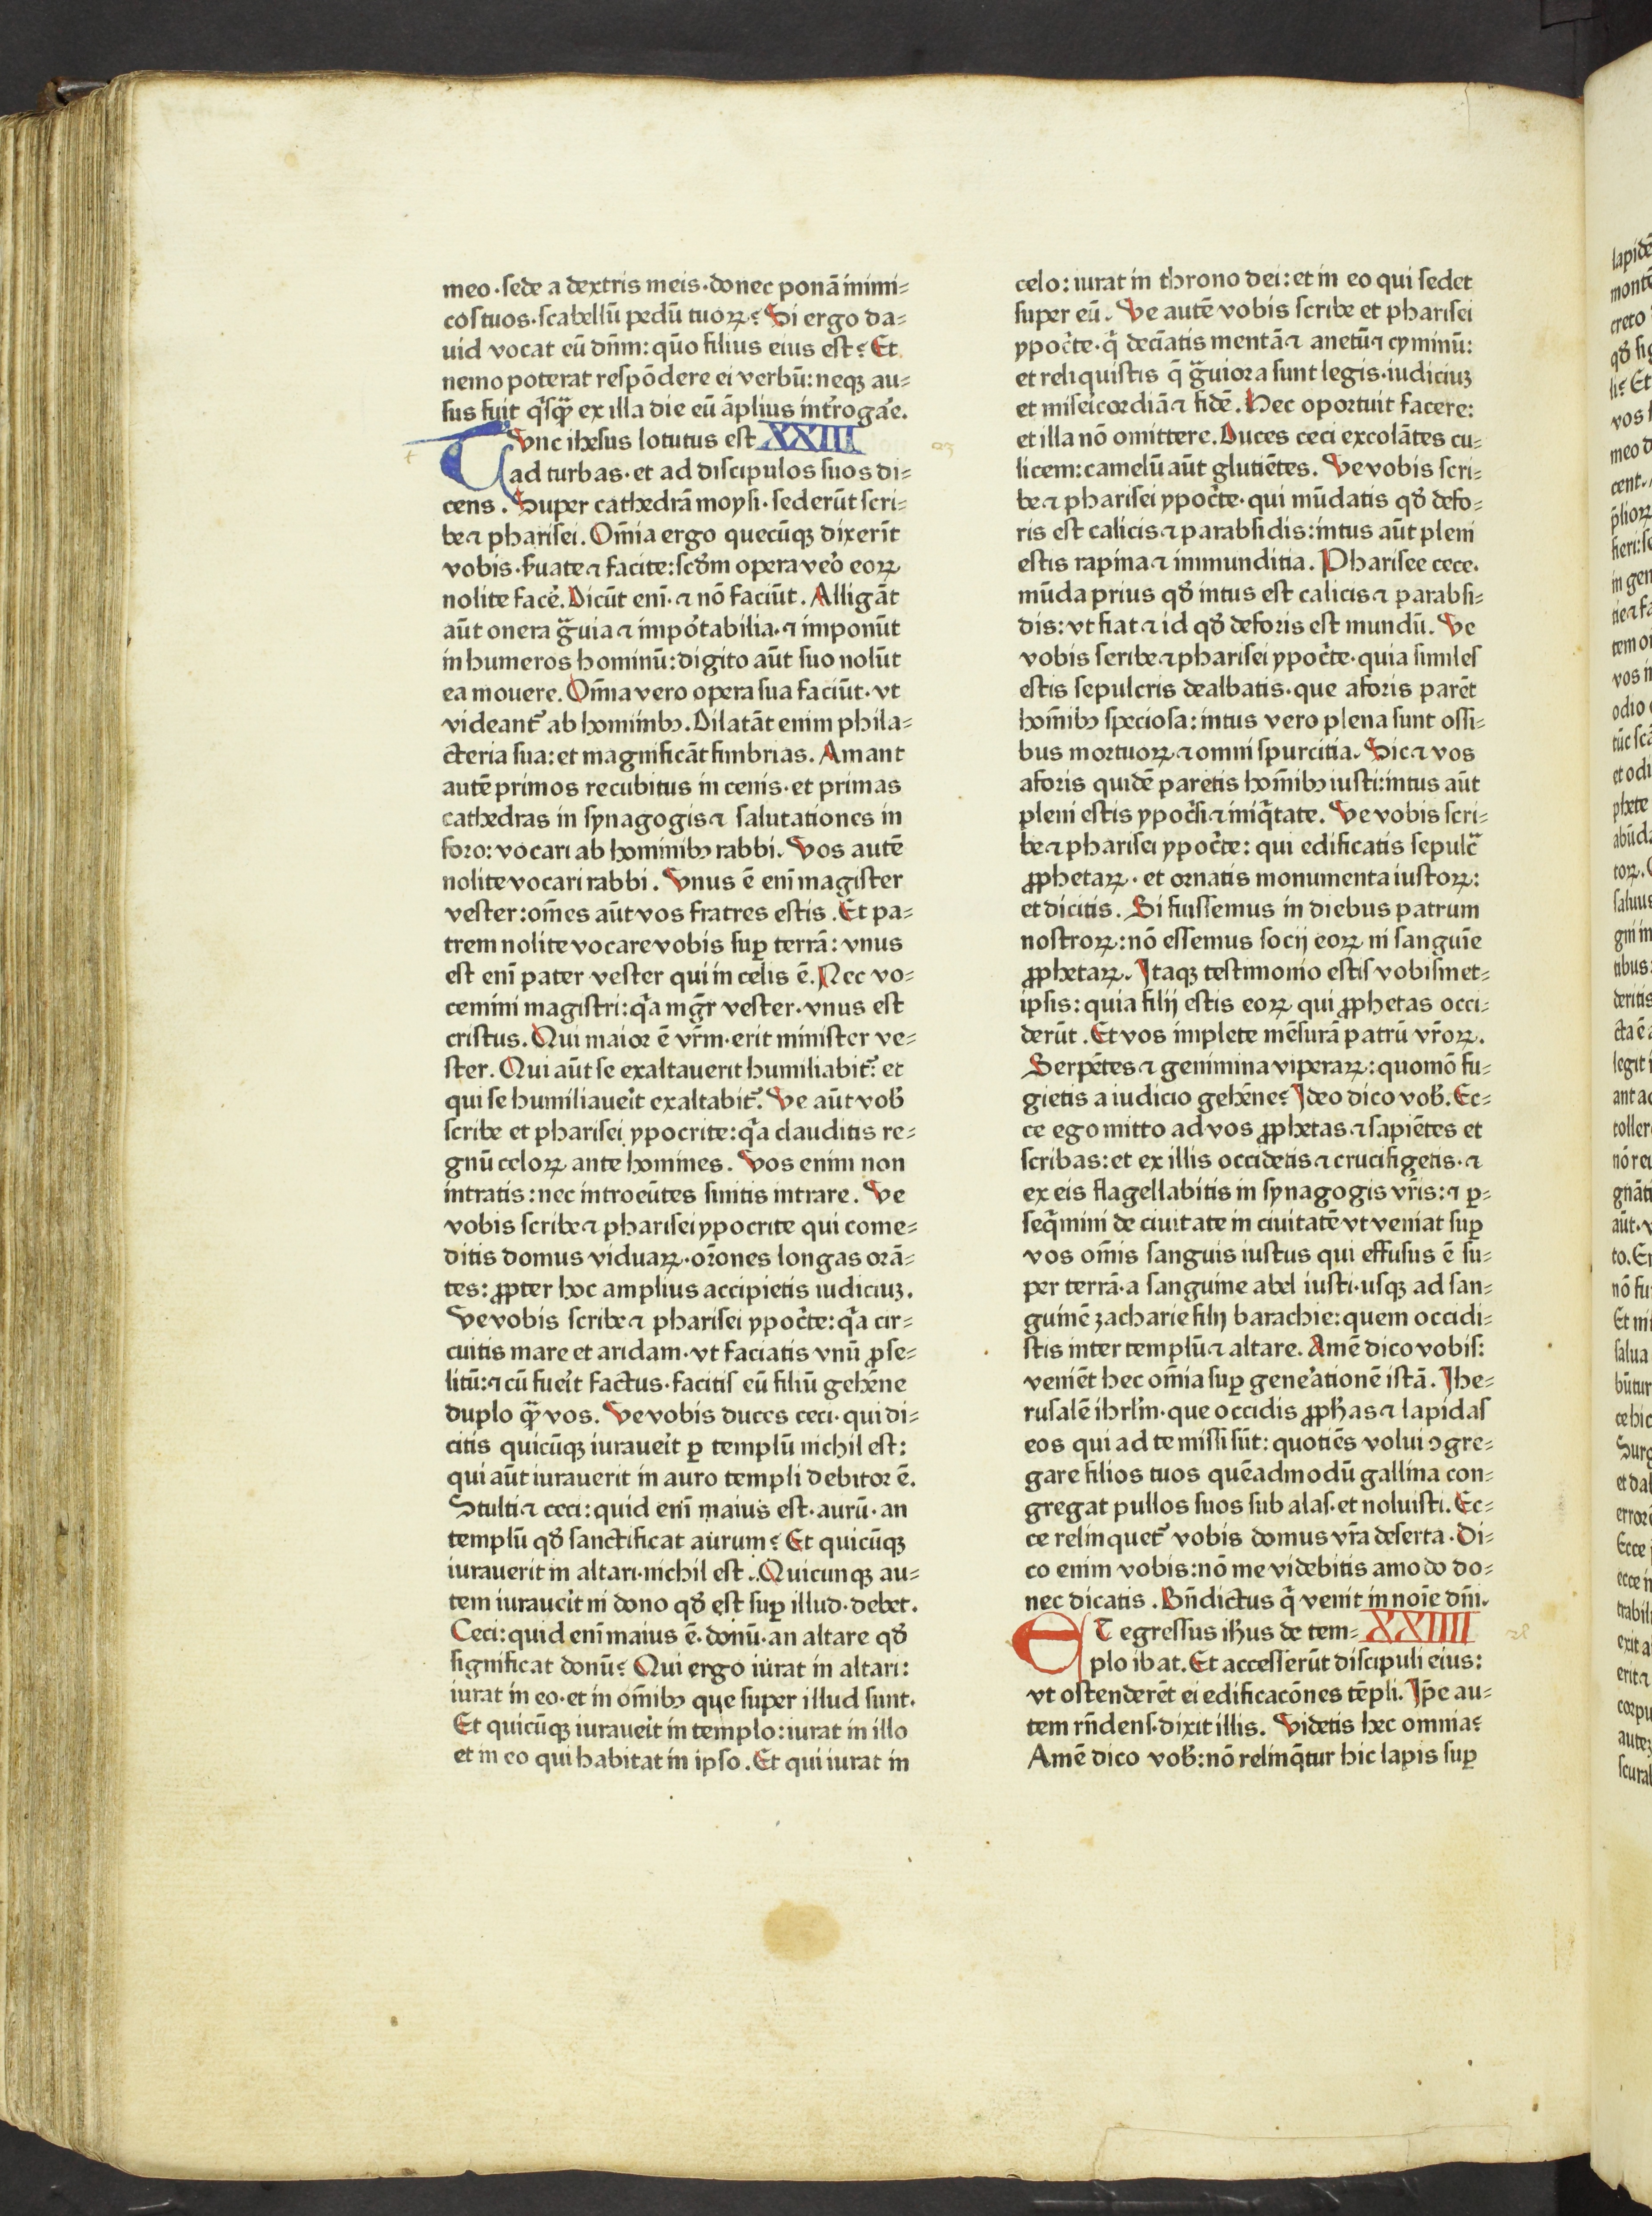 meo·sede a dextris meis·donec ponā inimi⸗
cos tuos·scabellū pedū tuoꝝ? Si ergo da⸗
uid vocat eū dn̄m: quō filius eius est? Et
nemo poterat respōdere ei verbū: neqꝫ au⸗
sus fuit q̄sq̄ ex illa die eū āplius int̓roga̓e.
Tvnc ihesus lotutus est XXIII
ad turbas· et ad discipulos suos di⸗
cens. Super cathedrā moysi· sederūt scri⸗
be⁊ pharisei. Om̄ia ergo quecūqꝫ dixerīt
vobis·ẜuate⁊ facite: scd̓m opera veo̓ eoꝝ
nolite face̓. Dicūt enī·⁊ nō faciūt. Alligāt
aūt onera gͣuia⁊ impo̓tabilia·⁊ imponūt
in humeros hominū: digito aūt suo nolūt
ea mouere. Om̄ia vero opera sua faciūt·vt
videant᷑ ab hominibꝰ. Dilatāt enim phila⸗
cteria sua: et magnificāt fimbrias. Amant
autē primos recubitus in cenis·et primas
cathedras in synagogis⁊ salutationes in
foro: vocari ab hominibꝰ rabbi. Vos autē
nolite vocari rabbi. Vnus ē enī magister
vester: om̄es aūt vos fratres estis. Et pa⸗
trem nolite vocare vobis suꝑ terrā: vnus
est enī pater vester qui in celis ē. Nec vo⸗
cemini magistri: qͣa mgr̄ vester·vnus est
cristus. Qui maior ē vrm̄·erit minister ve⸗
ster. Qui aūt se exaltauerit humiliabit᷑: et
qui se humiliaue̓it exaltabit᷑. Ve aūt vob̓
scribe et pharisei ypocrite: qͣa clauditis re⸗
gnū celoꝝ ante homines. Vos enim non
intratis: nec introeūtes sinitis intrare. Ve
vobis scribe⁊ pharisei ypocrite qui come⸗
ditis domus viduaꝝ·or̄ones longas orā⸗
tes: ꝓpter hoc amplius accipietis iudiciuꝫ.
Ve vobis scribe⁊ pharisei ypoc̓te: qͣa cir⸗
cuitis mare et aridam·vt faciatis vnū ꝓse⸗
litū:⁊ cū fue̓it factus·facitis eū filiū gehēne
duplo q̄ vos. Ve vobis duces ceci·qui di⸗
citis quicūqꝫ iuraue̓it ꝑ templū nichil est:
qui aūt iurauerit in auro templi debitor ē.
Stulti⁊ ceci: quid enī maius est·aurū·an
templū qd̓ sanctificat aurum? Et quicūqꝫ
iurauerit in altari·nichil est. Quicunqꝫ au⸗
tem iuraue̓it in dono qd̓ est suꝑ illud·debet.
Ceci: quid enī maius ē·donū·an altare qd̓
significat donū? Qui ergo iurat in altari:
iurat in eo·et in om̄ibꝰ que super illud sunt.
Et quicūqꝫ iuraue̓it in templo: iurat in illo
et in eo qui habitat in ipso. Et qui iurat in
celo: iurat in throno dei: et in eo qui sedet
super eū. Ve autē vobis scribe et pharisei
ypoc̓te·q̇ deciatis mentā⁊ anetū⁊ cyminū:
et reliquistis q̄ gͣuiora sunt legis·iudiciuꝫ
et misei̓cordiā⁊ fidē. Hec oportuit facere:
et illa nō omittere. Duces ceci excolātes cu⸗
licem: camelū aūt glutiētes. Ve vobis scri⸗
be⁊ pharisei ypoc̓te·qui mūdatis qd̓ defo⸗
ris est calicis⁊ parabsidis: intus aūt pleni
estis rapina⁊ immunditia. Pharisee cece·
mūda prius qd̓ intus est calicis⁊ parabsi⸗
dis: vt fiat⁊ id qd̓ deforis est mundū. Ve
vobis scribe⁊ pharisei ypoc̓te·quia similes
estis sepulcris dealbatis·que aforis parēt
hom̄ibꝰ speciosa: intus vero plena sunt ossi⸗
bus mortuoꝝ⁊ omni spurcitia. Sic⁊ vos
aforis quidē paretis hom̄ibꝰ iusti: intus aūt
pleni estis ypoc̓si⁊ iniq̇tate. Ve vobis scri⸗
be⁊ pharisei ypoc̓te: qui edificatis sepulcͣ
ꝓphetaꝝ· et ornatis monumenta iustoꝝ:
et dicitis. Si fuissemus in diebus patrum
nostroꝝ: nō essemus socij eoꝝ in sanguīe
ꝓphetaꝝ. Itaqꝫ testimonio estis vobismet⸗
ipsis: quia filij estis eoꝝ qui ꝓphetas occi⸗
derūt. Et vos implete mēsurā patrū vr̄oꝝ.
Serpētes⁊ genimina viperaꝝ: quomō fu⸗
gietis a iudicio gehēne? Ideo dico vob̓. Ec⸗
ce ego mitto ad vos ꝓphetas⁊ sapiētes et
scribas: et ex illis occidetis⁊ crucifigetis·⁊
ex eis flagellabitis in synagogis vr̄is:⁊ ꝑ⸗
seq̇mini de ciuitate in ciuitatē vt veniat suꝑ
vos om̄is sanguis iustus qui effusus ē su⸗
per terrā·a sanguine abel iusti·usqꝫ ad san⸗
guinē zacharie filij barachie: quem occidi⸗
stis inter templū⁊ altare. Amē dico vobis:
veniēt hec om̄ia suꝑ gene̓ationē istā. Ihe⸗
rusalē ihrl̓m·que occidis ꝓph̓as⁊ lapidas
eos qui ad te missi sūt: quotiēs volui ꝯgre⸗
gare filios tuos quēadmodū gallina con⸗
gregat pullos suos sub alas·et noluisti. Ec⸗
ce relinquet᷑ vobis domus vr̄a deserta. Di⸗
co enim vobis: nō me videbitis amodo do⸗
nec dicatis. Bn̄dictus q̇ venit in noīe dn̄i.
ET egressus ih̓us de tem⸗ XXIIII
plo ibat. Et accesserūt discipuli eius:
vt ostenderēt ei edificacōnes tēpli. Ip̄e au⸗
tem rn̄dens·dixit illis. Videtis hec omnia?
Amē dico vob̓: nō relinq̄tur hic lapis suꝑ